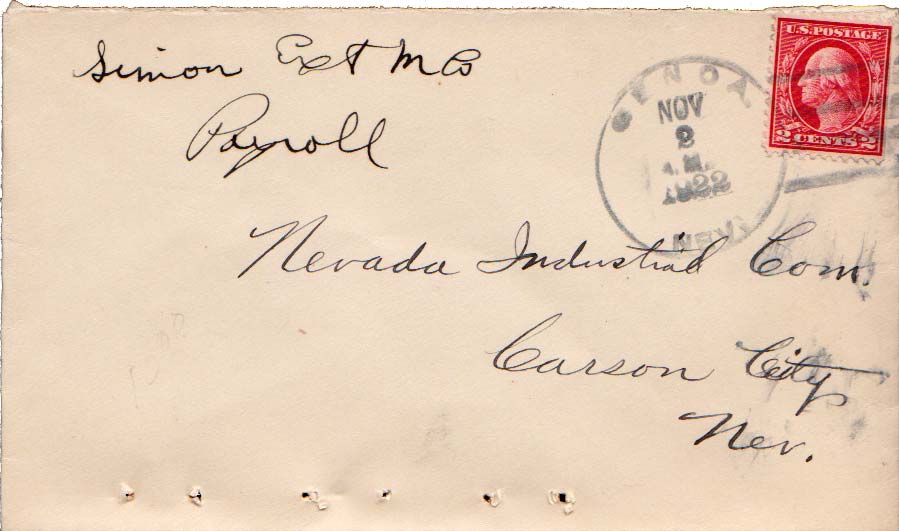 Simon Ext M Co
Payroll
GENOA
NOV
2
A.M.
1922
NEV.
U.S. POSTAGE
2 CENTS 2
Nevada Industrial Com.
Carson City
Nev.